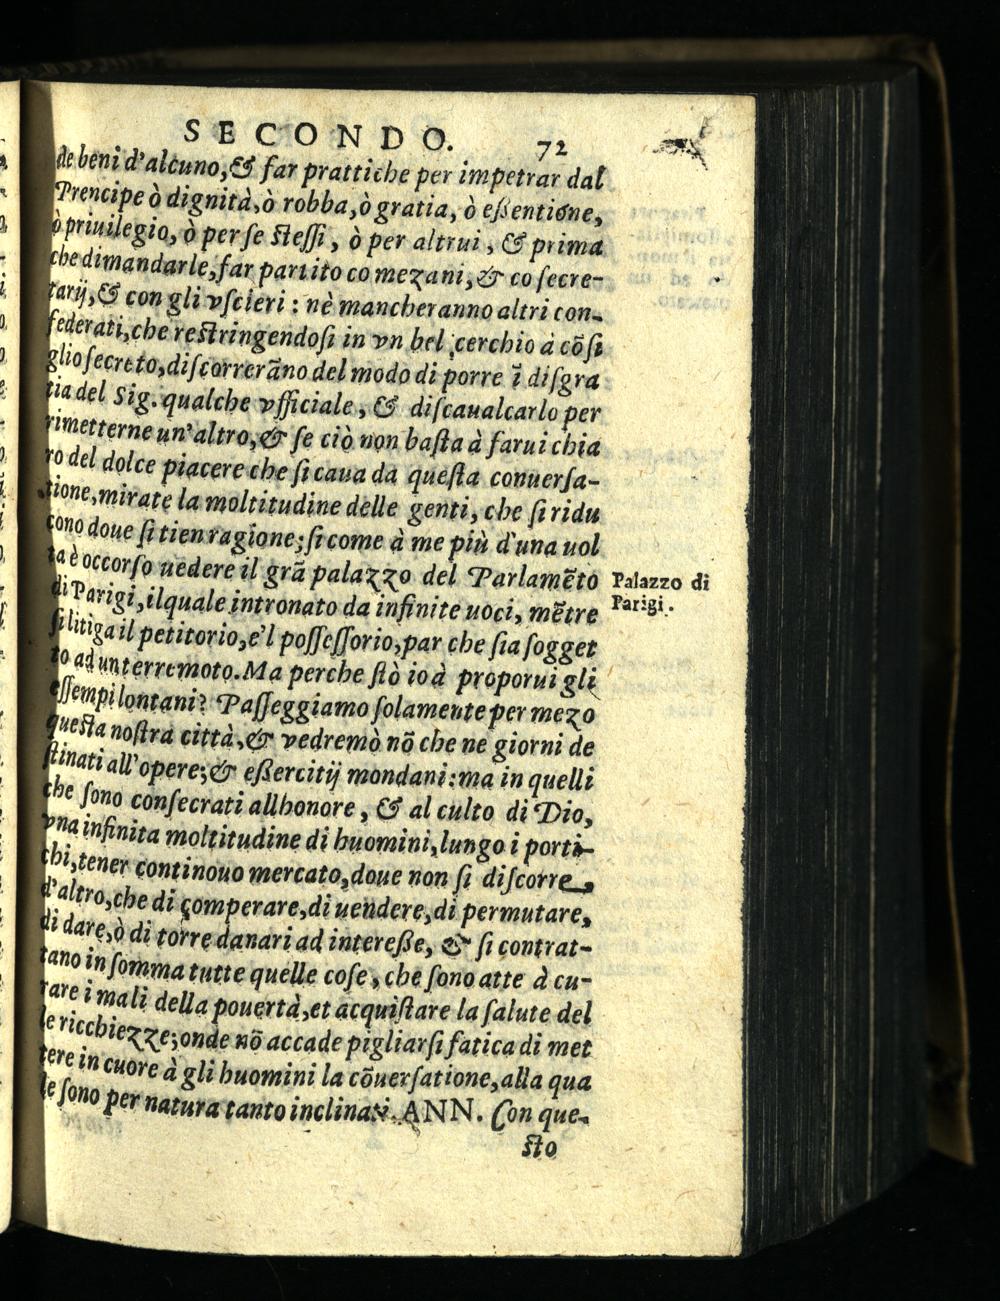 SECONDO. 72
de beni d'alcuno, & far prattiche per impetrar dal
Prencipe ò dignità, ò robba, ò gratia, ò eßentione,
ò priuilegio, ò per se steſſi, ò per altrui, & prima
che dimandarle, far partito co mezani, & co ſecre-
tarij, & con gli vſcieri: nè mancheranno altri con-
federati, che reſtringendoſi in vn bel cerchio à cõſi
glio ſecreto, diſcorrerãno del modo di porre ĩ diſgra
tia del Sig. qualche vfficiale, & diſcaualcarlo per
rimetterne un'altro, & ſe ciò non baſta à farui chia
ro del dolce piacere che ſi caua da queſta conuerſa-
tione, mirate la moltitudine delle genti, che ſi ridu
cono doue ſi tien ragione; ſi come à me più d'una uol
ta è occorſo uedere il grã palazzo del Parlamẽto
di Parigi, ilquale intronato da infinite uoci, mẽtre
ſi litiga il petitorio, e'l poſſeſſorio, par che ſia ſogget
to ad un terremoto. Ma perche ſtò io à proporui gli
eſſempi lontani? Paſſeggiamo ſolamente per mezo
queſta noſtra città, & vedremò nõ che ne giorni de
ſtinati all'opere; & eßercitij mondani: ma in quelli
che ſono conſecrati allhonore, & al culto di Dio,
vna infinita moltitudine di huomini, lungo i porti-
chi, tener continouo mercato, doue non ſi diſcorre,
d'altro, che di comperare, di uendere, di permutare,
di dare, ò di torre danari ad intereße, & ſi contrat-
tano in ſomma tutte quelle coſe, che ſono atte à cu-
rare i mali della pouertà, et acquiſtare la ſalute del
le ricchiezze; onde nõ accade pigliarſi fatica di met
tere in cuore à gli huomini la cõuerſatione, alla qua
le ſono per natura tanto inclinati. ANN. Con que-
ſto
Palazzo di
Parigi.